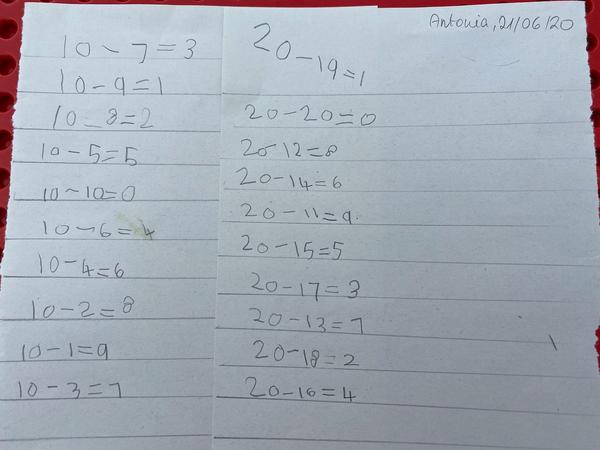 Antonia, 21/06/20
10 - 7 = 3
10 - 9 = 1
10 - 8 = 2
10 - 5 = 5
10 - 10 = 0
10 - 6 = 4
10 - 4 = 6
10 - 2 = 8
10 - 1 = 9
10 - 3 = 7
20 - 19 = 1
20 - 20 = 0
20 - 12 = 8
20 - 14 = 6
20 - 11 = 9
20 - 15 = 5
20 - 17 = 3
20 - 13 = 7
20 - 18 = 2
20 - 16 = 4